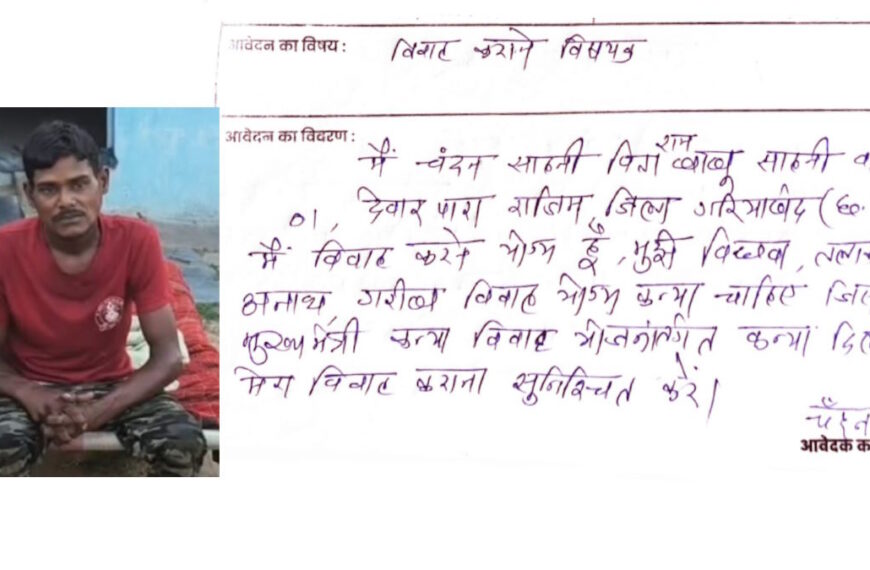 आवेदन का विषय :
विवाह कराने विषयक
आवेदन का विवरण :
राम
मैं चंदन साहनी पिता बाबू साहनी
01, देवार पारा राजिम, जिला गरियाबंद (छ.
मैं विवाह करने योग्य हूँ, मुझे विधवा,
अनाथ, गरीब विवाह योग्य कन्या चाहिए
मुख्यमंत्री कन्या विवाह योजनांतर्गत कन्या
मेरा विवाह कराना सुनिश्चित करें।
आवेदक